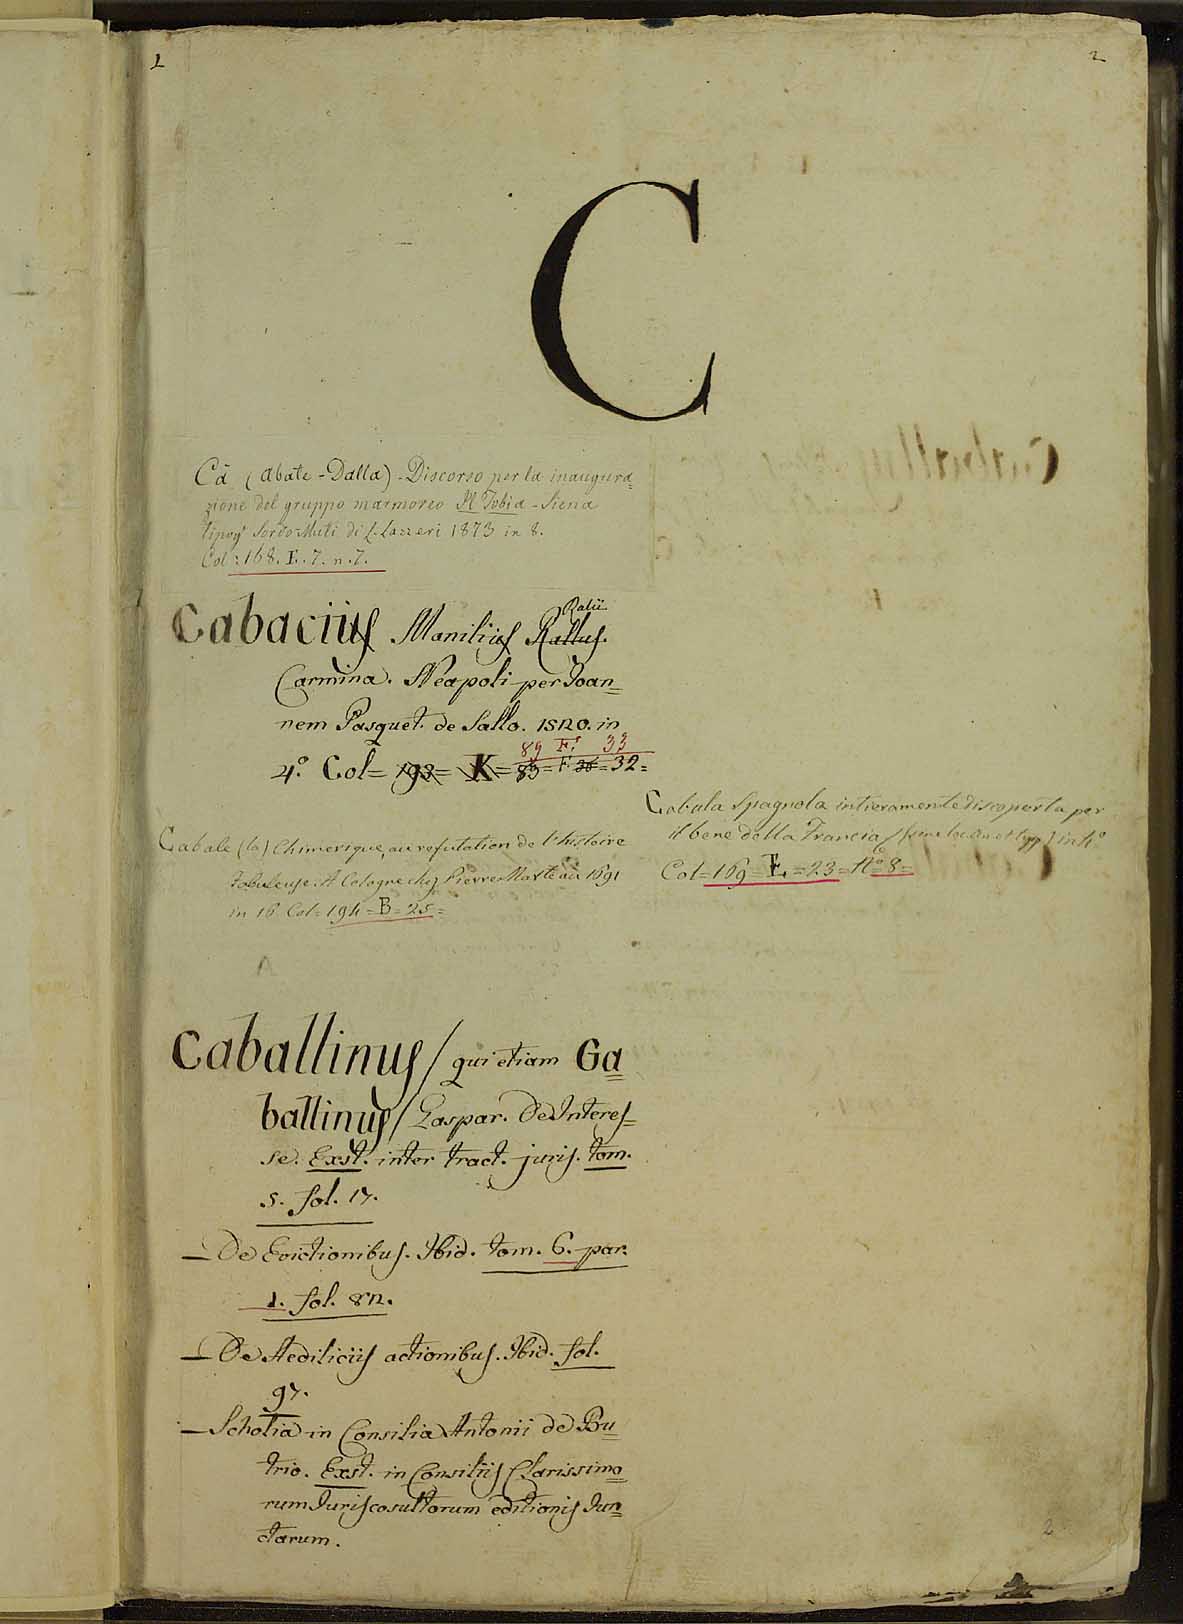 1
2
C
Cà (Abate-Dalla) - Discorso per la inaugura=
zione del gruppo marmoreo Il Tobia - Siena
tipogª Sordo-Muti di L. Lazzeri 1873 in 8.
Col: 168. E. 7. n. 7.
Cabacius Manilius Rallus.
Ralii
Carmina. Neapoli per Joan=
nem Pasquet. de Sallo. 1520. in
89 F. 33
4.º Col= 193= K= 83= F 36= 32=
Cabale (la) Chimerique, ou refutation de l'histoire
fabuleuse. A Cologne chez Pierre Marteau 1691
in 16 Col= 194= B= 25=
Cabala Spagnola intieramente discoperta per
il bene della Francia (sine loc. an. et typ.) in 4º
Col= 169= E= 23= Nº 8=
Caballinus / qui etiam Ga=
ballinus / Gaspar. De Interes=
se. Exst. inter tract. juris. tom.
5. fol. 17.
— De Evictionibus. Ibid. tom. 6. par.
1. fol. 82.
— De Aediliciis actionibus. Ibid. fol.
97.
— Scholia in Consilia Antonii de Bu=
trio. Exst. in Consiliis Clarissimo=
rum Juriscosultorum editionis Jun=
ctarum.
2